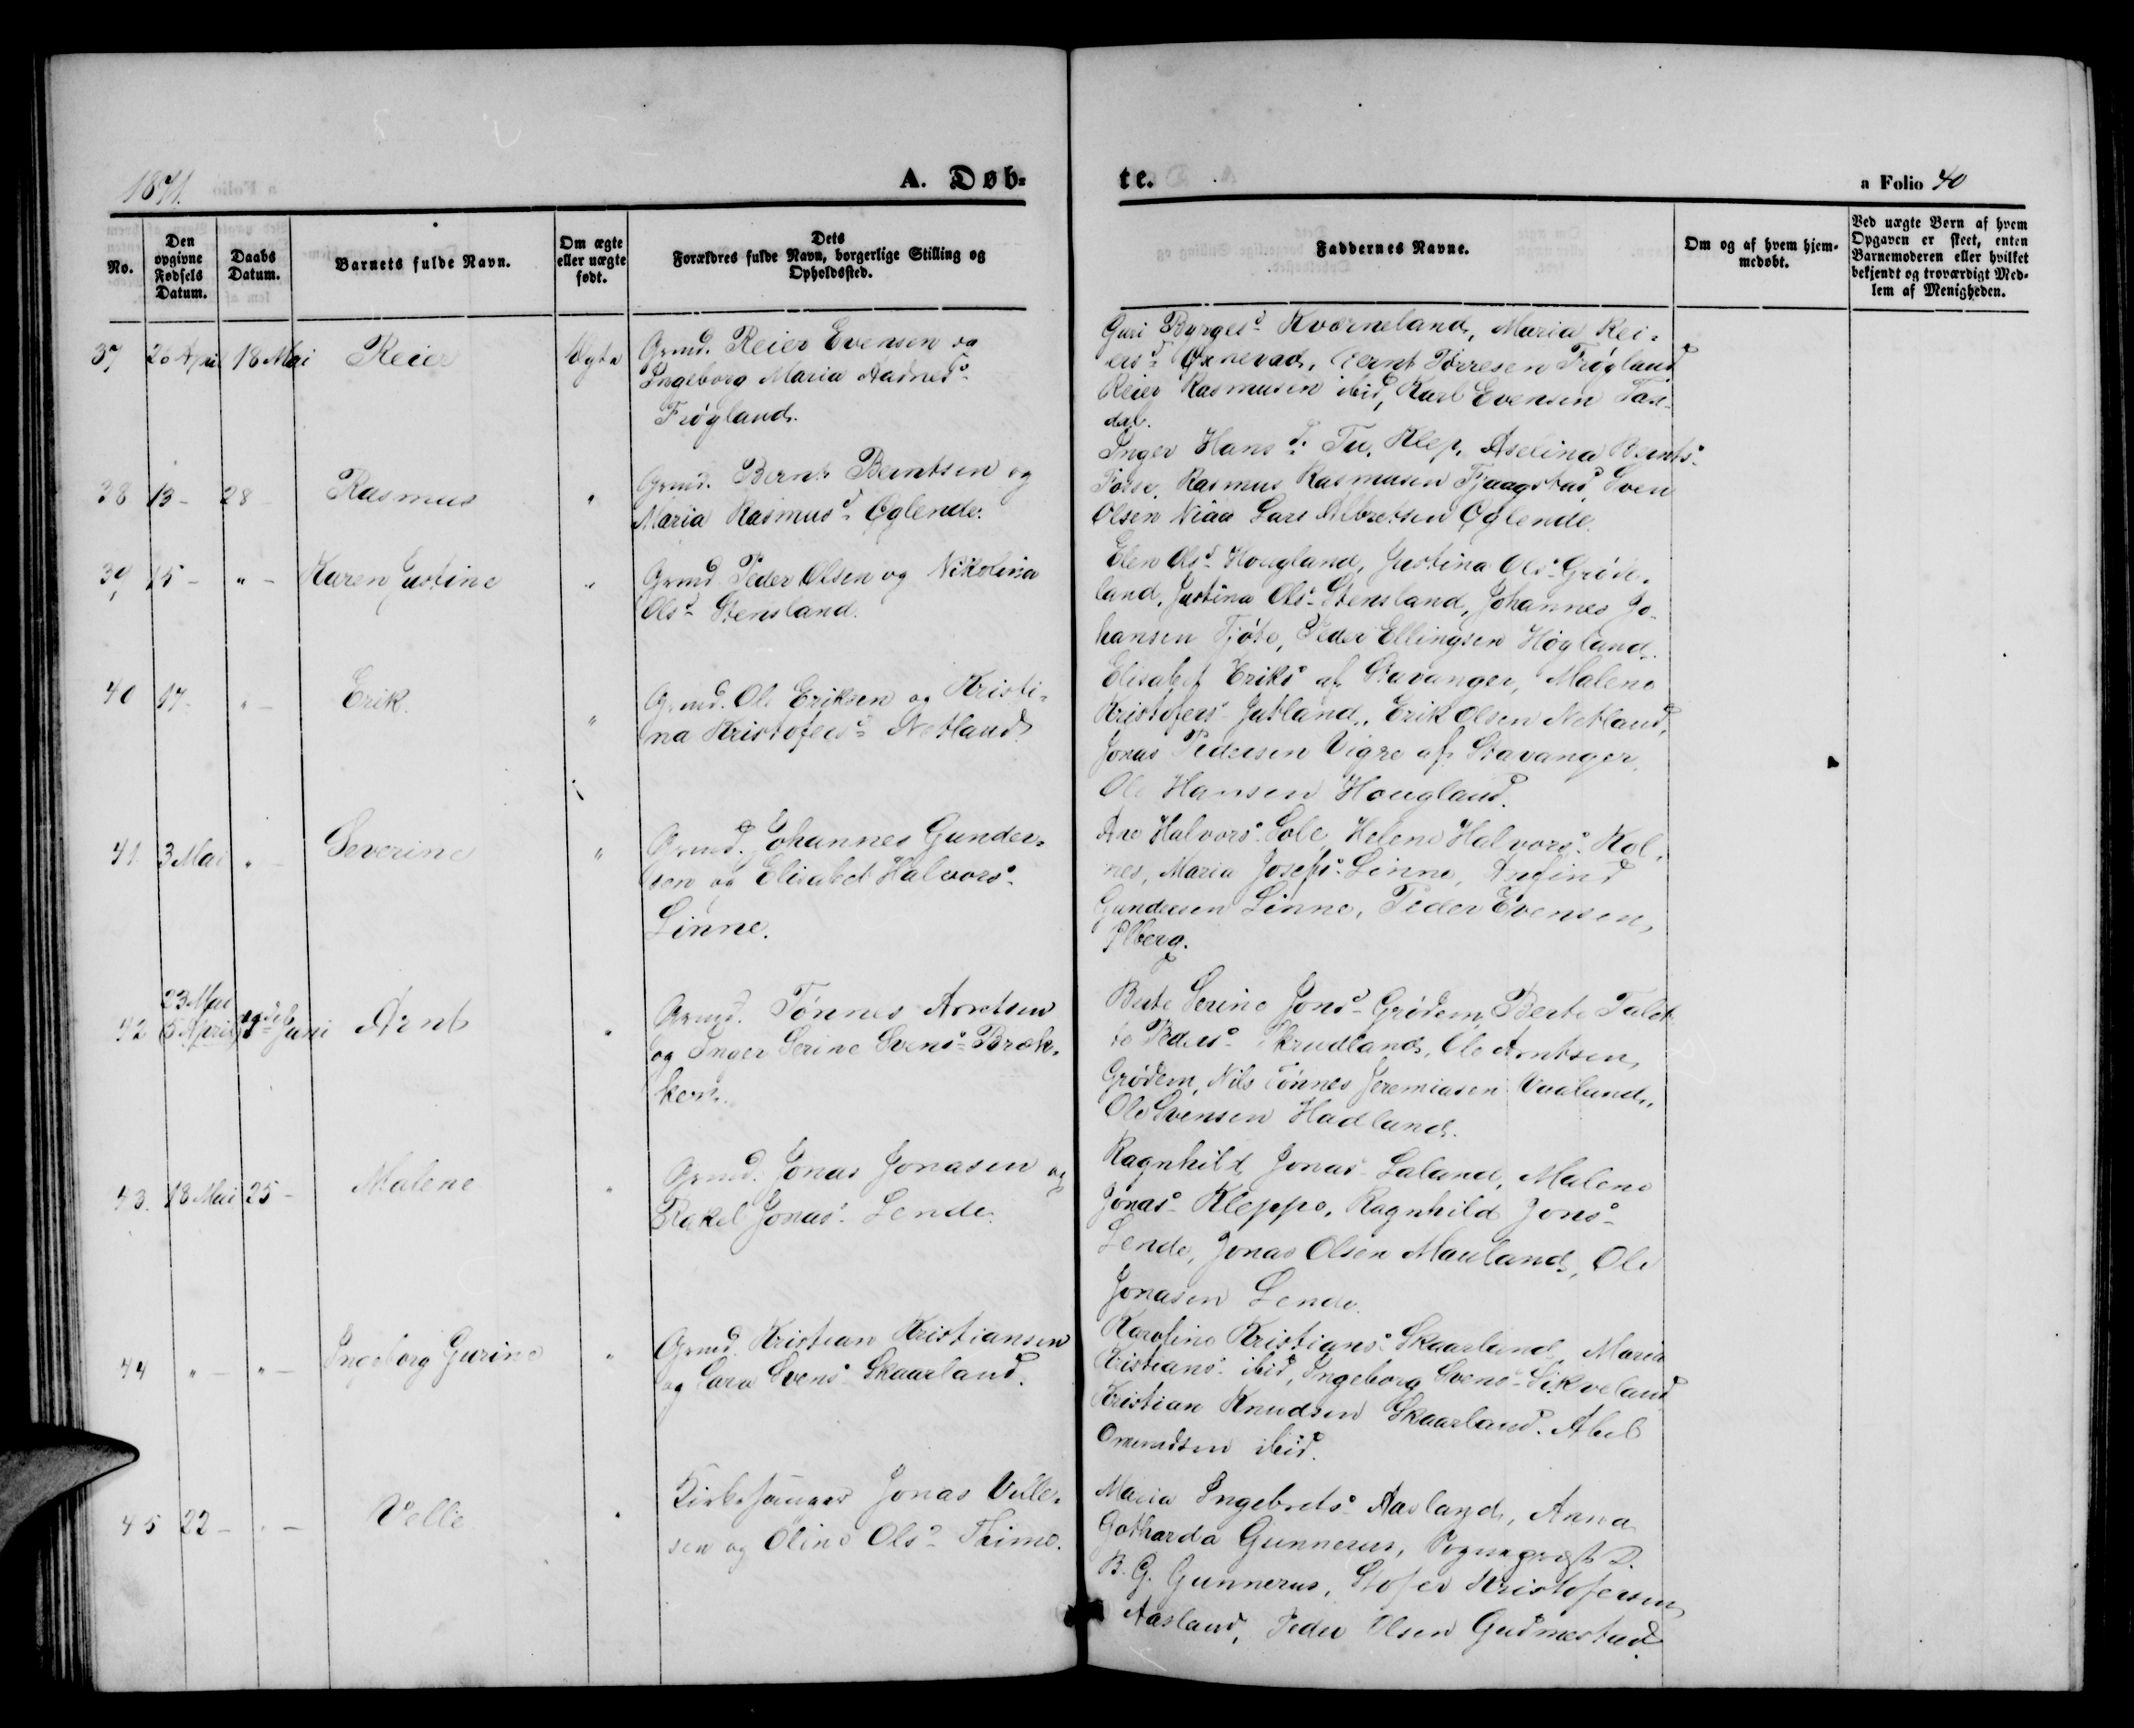 1871.
A. Døb-
te.
a Folio 40
No.
Den opgivne Fødsels Datum.
Daabs Datum.
Barnets fulde Navn.
Om ægte eller uægte født.
Dets Forældres fulde Navn, borgerlige Stilling og Opholdssted.
Faddernes Navne.
Om og af hvem hjemmedøbt.
Ved uægte Børn af hvem Opgaven er skeet, enten Barnemoderen eller hvilket bekjendt og troværdigt Medlem af Menigheden.
37 26 April 18 Mai Reier Ægte Grmd. Reier Evensen og
Ingeborg Maria Aadnesd.
Frøgland.
Guri Børgesd. Kværneland, Maria Rei-
ersd. Oxnevad, Bernt Tørresen Frøgland
Reier Rasmusen ibid, Karl Evensen
dal.
38 13 - 28 - Rasmus " Grmd. Bernt Berntsen og
Maria Rasmusd. Øglende.
Inger Hansd. Tu, Klep, Aselina Bernts.
Rasmus Rasmusen Tjaagstad, Sven
Olsen Niaa Lars Albretsen Øglende.
39 15 - " - Karen Justine " Grmd Peder Olsen og Nikolina
Olsd. Stensland.
Elen Olsd. Hougland, Justina Olsd. Grøde-
land, Justina Olsd. Stensland, Johannes Jo-
hansen Tjøte, Peder Ellingsen Høgland.
40 17 - " - Erik. " Grmd. Ole Eriksen og Kristi-
na Kristofersd. Netland
Elisabet Eriksd. af Stavanger, Malene
Kristofersd. Jutland, Erik Olsen Netland,
Jonas Pedersen Vigre af Stavanger
Ole Hansen Hougland.
41 3 Mai " - Severine " Grmd. Johannes Gunder-
sen og Elisabet Halvorsd.
Linne.
Ane Halvorsd. Sole, Helene Halvorsd. Kol-
nes, Maria Josefsd. Linne, Arfind
Gundersen Linne, Peder Evensen,
42 23 Mai
5 April Juni Arnt " Grmd. Tønnes Arntsen
og Inger Serine Svensd. Bræk-
ken.
Berte Serine Jonsd. Grødem, Berte
Pedersd. Skrudland, Ole Arntsen,
Grødem, Nils Tønnes Jeremiasen Vaaland,
Ole Svensen Hadland.
43. 18 Mai 25 - Malene " Grmd. Jonas Jonasen og
Rakel Jonasd. Lende.
Ragnhild Jonasd. Laland, Malene
Jonasd. Kleppe, Ragnhild Jonsd.
Lende, Jonas Olsen Mauland, Ole
Jonasen Lende.
44 " - " - Ingeborg Gurine " Grmd. Kristian Kristiansen
og Sara Svensd. Skaarland.
Karoline Kristiansd. Skaarland, Maria
Kristiansd. ibid, Ingeborg Svensd. Sikveland
Kristian Knudsen Skaarland. Abel
Omundsen ibid.
45 22 - " - Velle " Kirkesanger Jonas Velle-
sen og Oline Olsd. Thime.
Maria Ingebretsd. Aasland, Anna
Gotharda Gunnerus, Sogneprest D.
B. G. Gunnerus, Stofer Kristofersen
Aasland, Peder Olsen Gudmestad.